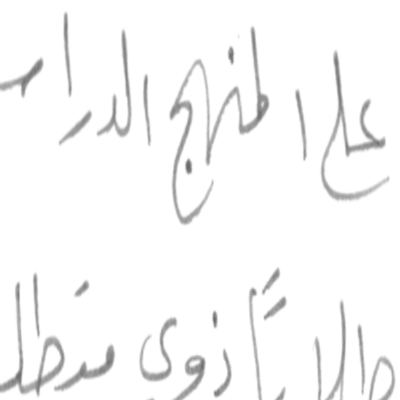 على المنهج الدرا
طلاباً ذوي متطل